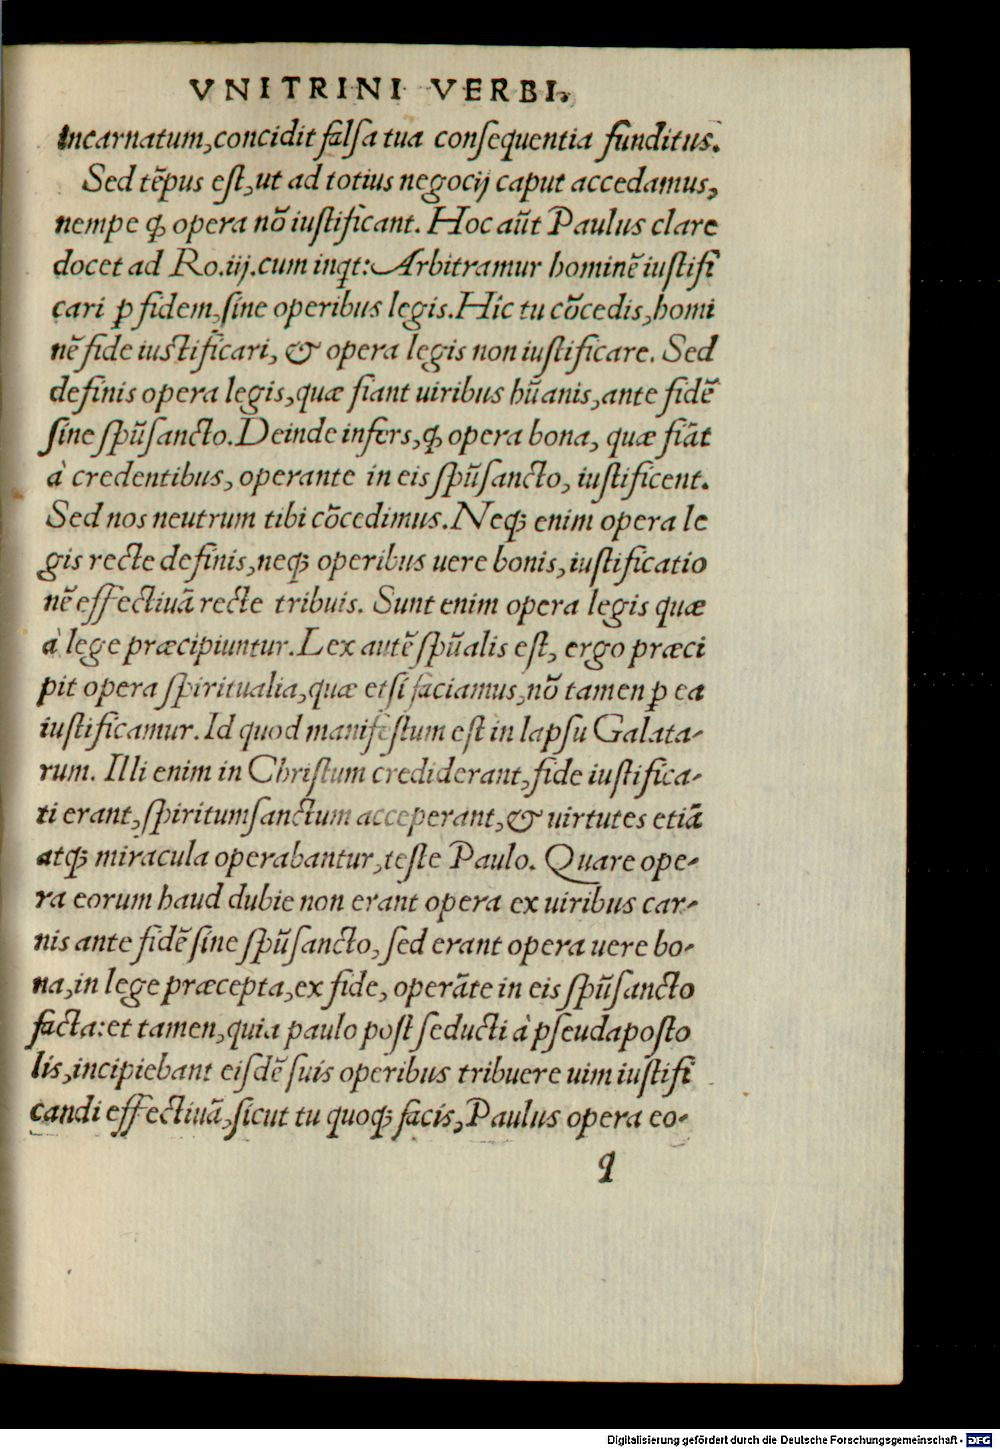 VNITRINI VERBI.
incarnatum, concidit falsa tua consequentia funditus.
Sed tẽpus est, ut ad totius negocij caput accedamus,
nempe ꝙ opera nõ iustificant. Hoc aũt Paulus clare
docet ad Ro.iij. cum inqt: Arbitramur hominẽ iustifi
cari ꝑ fidem, sine operibus legis. Hic tu cõcedis, homi
nẽ fide iustificari, & opera legis non iustificare. Sed
definis opera legis, quæ fiant uiribus hũanis, ante fidẽ
sine spũsancto. Deinde infers, ꝙ opera bona, quæ fiãt
à credentibus, operante in eis spũsancto, iustificent.
Sed nos neutrum tibi cõcedimus. Neqꝫ enim opera le
gis recte definis, neqꝫ operibus uere bonis, iustificatio
nẽ effectiuã recte tribuis. Sunt enim opera legis quæ
à lege præcipiuntur. Lex autẽ spũalis est, ergo præci
pit opera spiritualia, quæ etsi faciamus, nõ tamen ꝑ ea
iustificamur. Id quod manifestum est in lapsu Galata-
rum. Illi enim in Christum crediderant, fide iustifica-
ti erant, spiritumsanctum acceperant, & uirtutes etiã
atqꝫ miracula operabantur, teste Paulo. Quare ope-
ra eorum haud dubie non erant opera ex uiribus car-
nis ante fidẽ sine spũsancto, sed erant opera uere bo-
na, in lege præcepta, ex fide, operãte in eis spũsancto
facta: et tamen, quia paulo post seducti à pseudaposto
lis, incipiebant eisdẽ suis operibus tribuere uim iustifi
candi effectiuã, sicut tu quoqꝫ facis, Paulus opera eo-
q
Digitalisierung gefördert durch die Deutsche Forschungsgemeinschaft - DFG